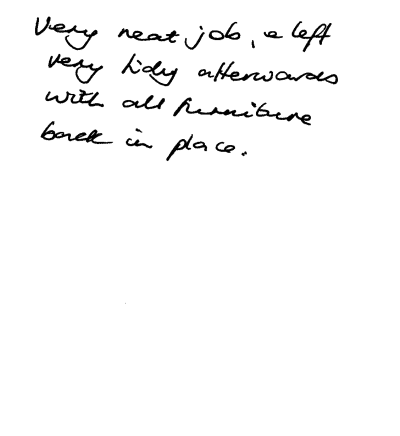 Very neat job, & left
very tidy afterwards
with all furniture
back in place.